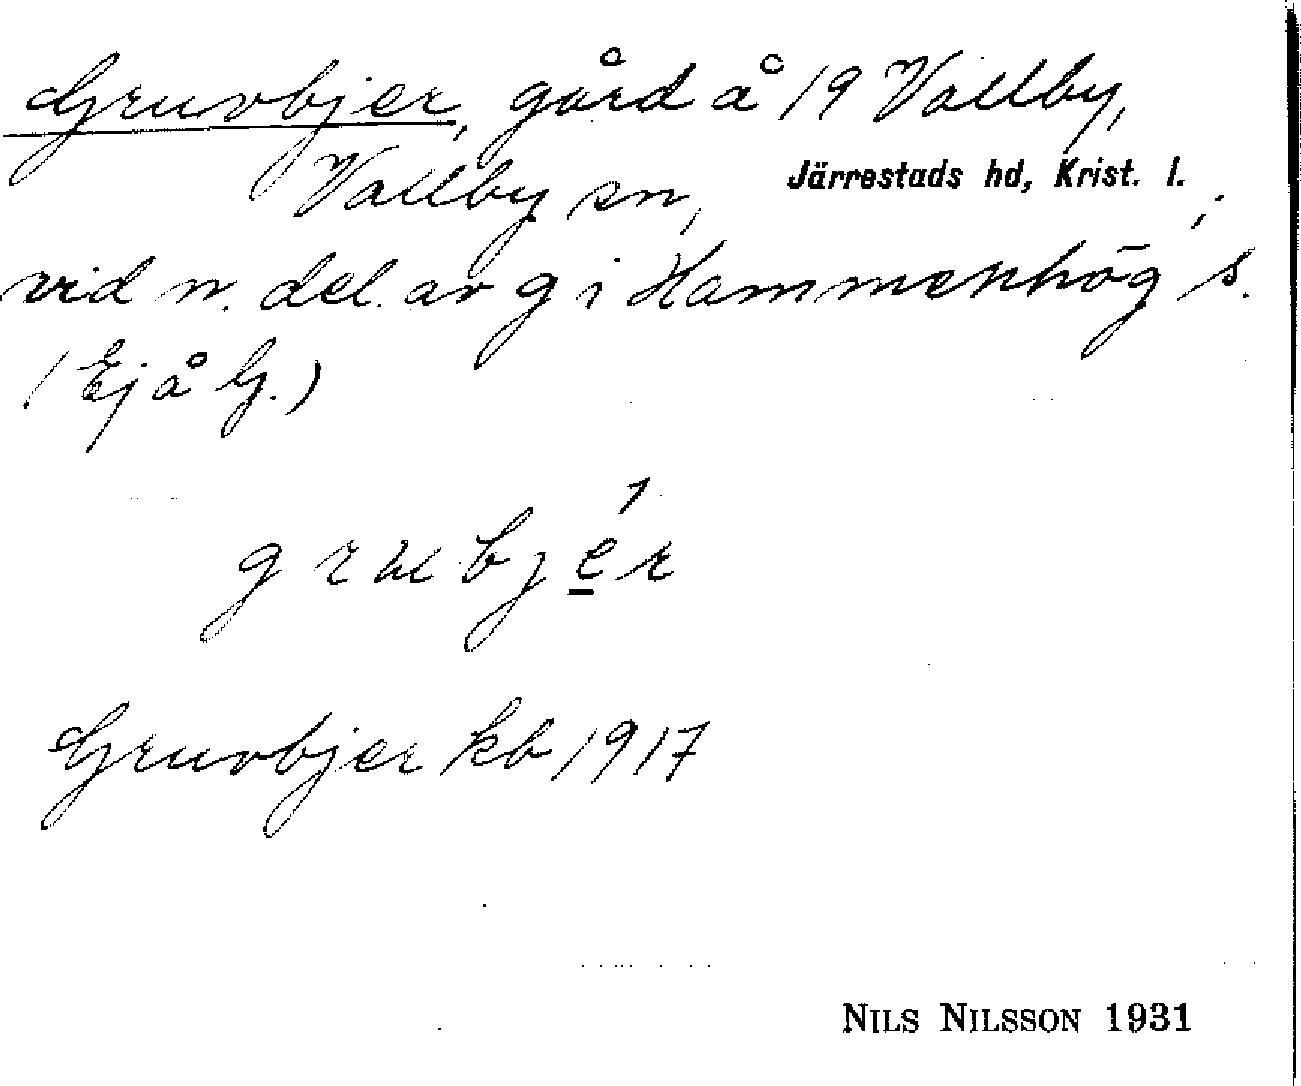 Gruvbjer, gård å 19 Vallby,
Vallby sn, Järrestads hd, Krist. l. ;
vid n. del. av g i Hammenhög s.
(Ej å G.)
grubjér
Gruvbjer kb 1917
NILS NILSSON 1931